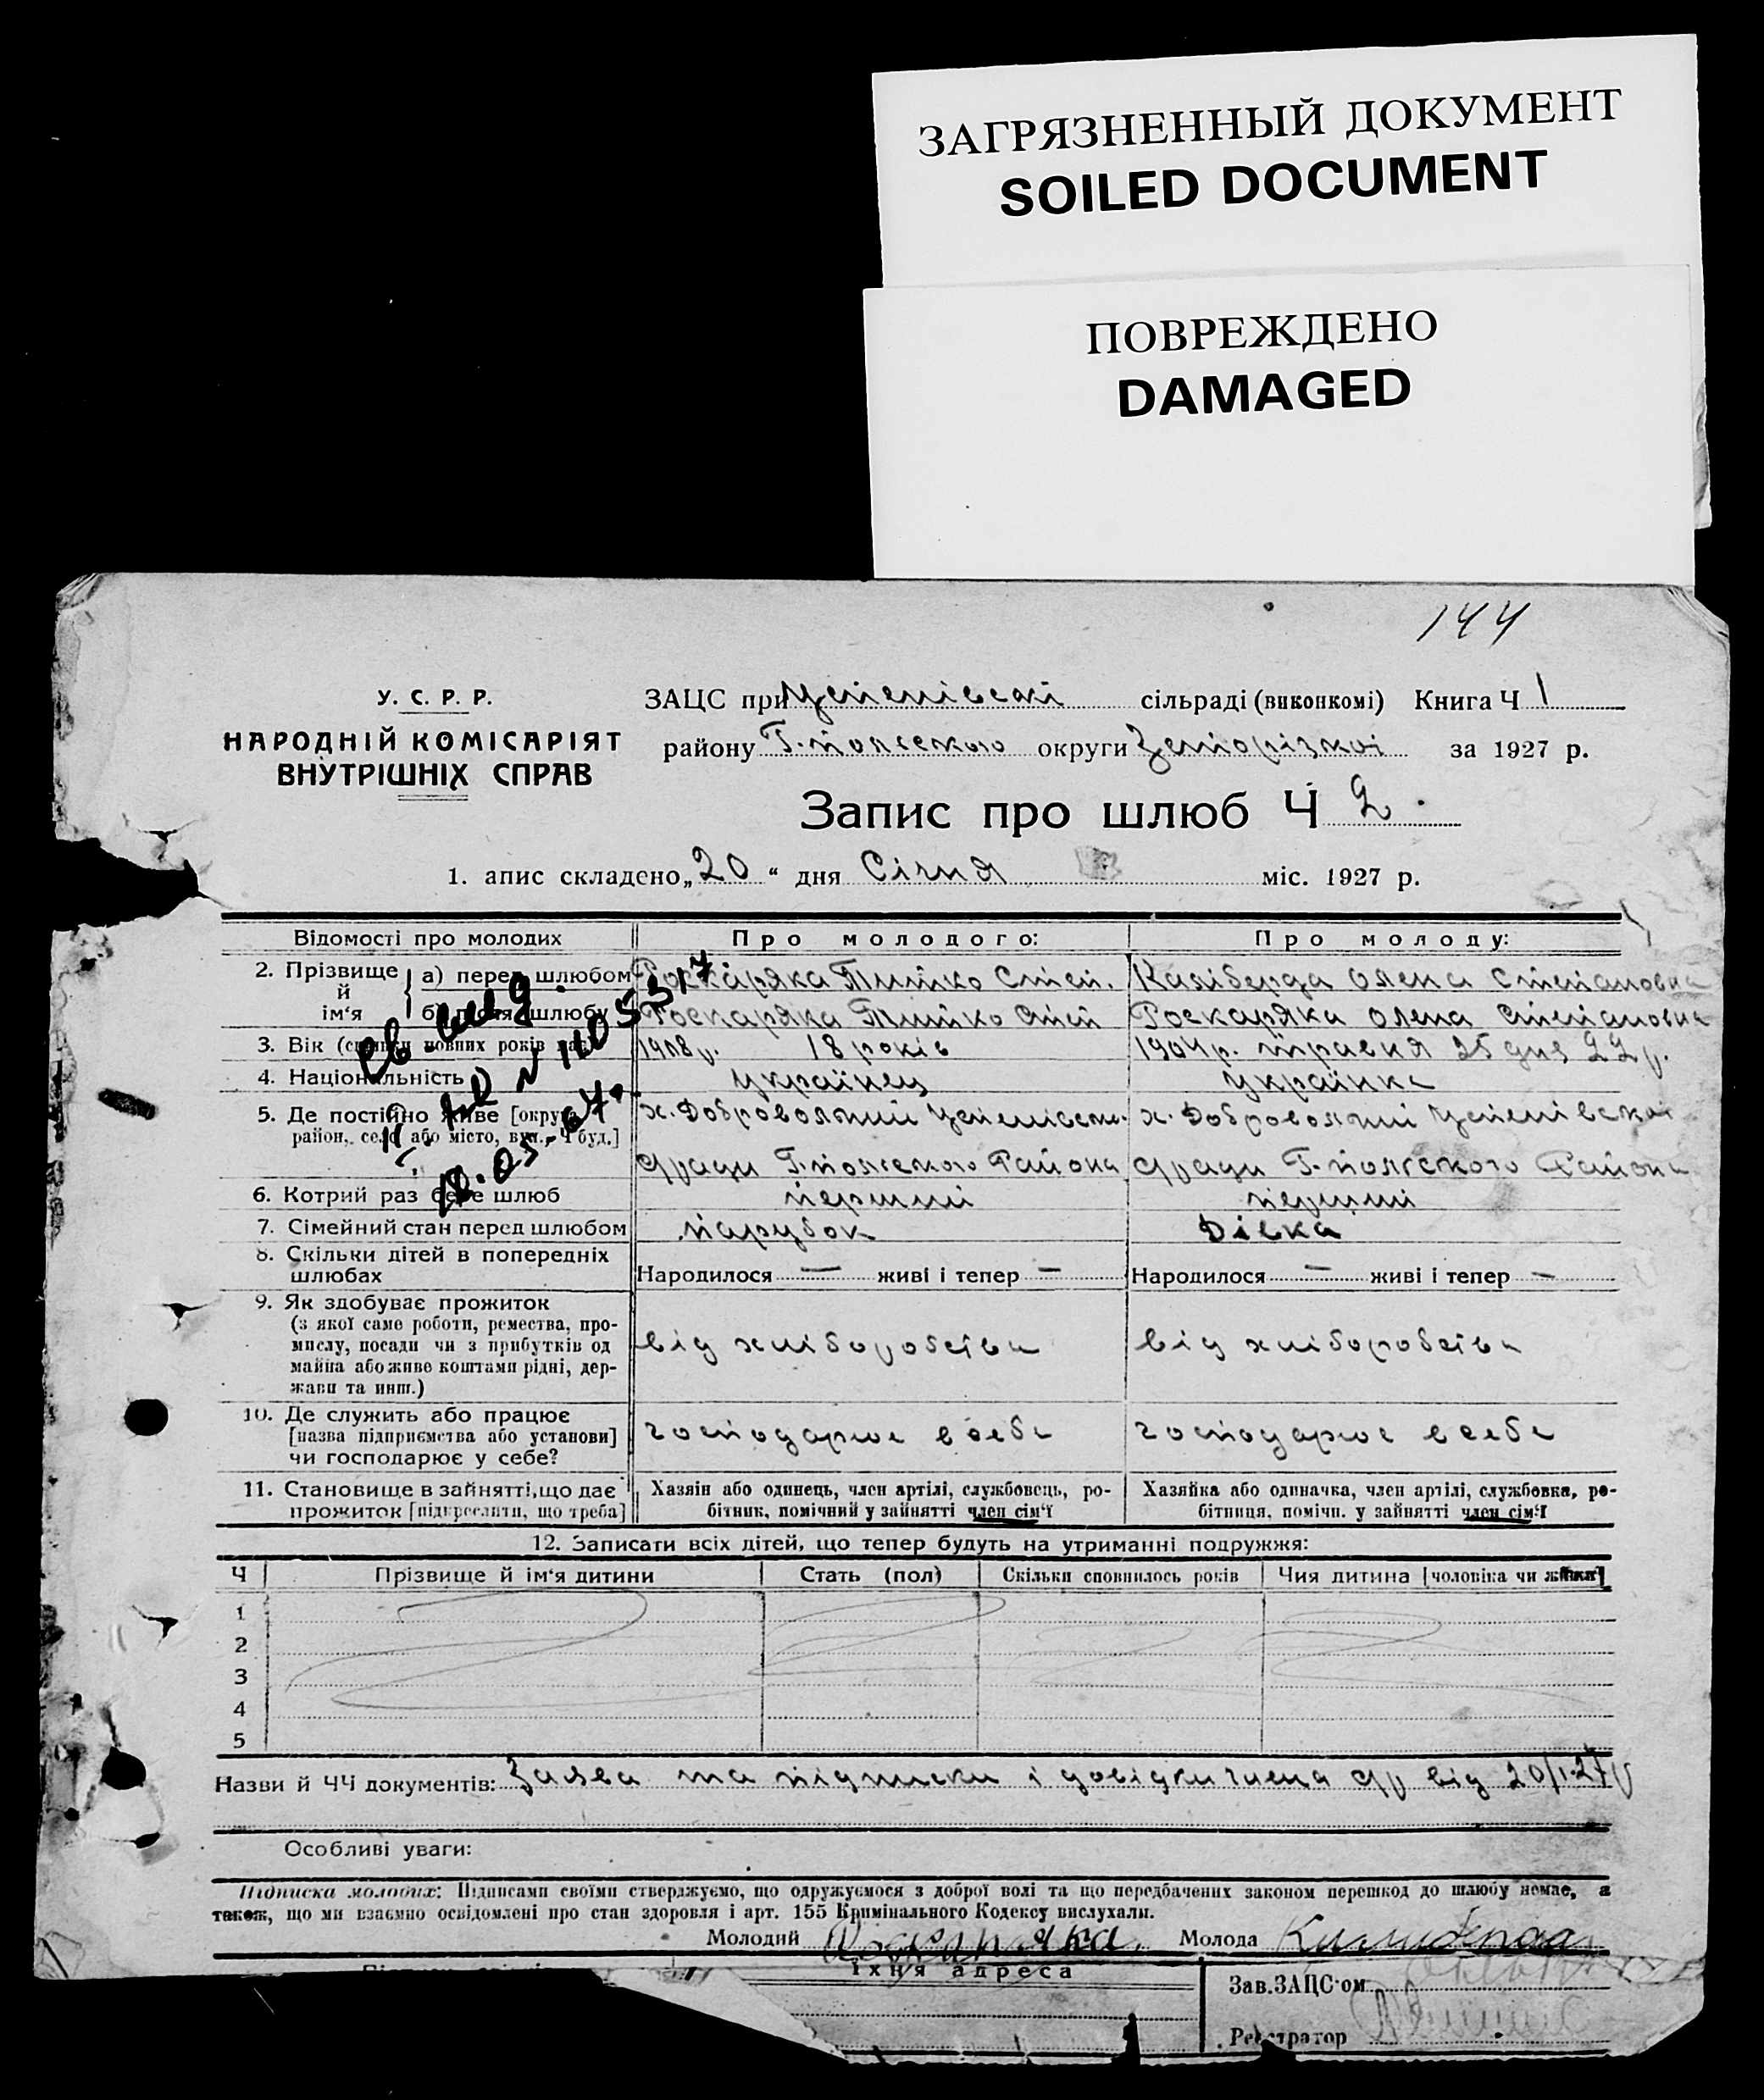 ЗАГРЯЗНЕННЫЙ ДОКУМЕНТ
SOILED DOCUMENT
ПОВРЕЖДЕНО
DAMAGED
144
У. С. Р. Р.
НАРОДНІЙ КОМІСАРІЯТ
ВНУТРІШНІХ СПРАВ
ЗАЦС при Успенівскі сільраді (виконкомі) Книга Ч 1
району Г-польского округи Запорізкої за 1927 р.
Запис про шлюб Ч 2.
1. апис складено „20“ дня Січня міс. 1927 р.
Відомості про молодих Про молодого: Про молоду:
2. Прізвище й ім‘я
а) перед шлюбом Роскаряка Титко Степ. Каліберда Олена Степановна
б) після шлюбу Роскаряка Титко Степ Роскаряка Олена Степановна
3. Вік 1908 р. 18 років 1904 р. травня 25 дня 22 р.
4. Національність українец українка
5. Де постійно живе [округа, район, село або місто, вул., Ч буд.]
х. Добровольний Успенівськ. х. Добровольний Успенівскої
с/ради Г-польского Района с/ради Г-польского Района
6. Котрий раз бере шлюб перший перший
7. Сімейний стан перед шлюбом парубок дівка
8. Скільки дітей в попередніх
шлюбах Народилося — живі і тепер — Народилося — живі і тепер —
9. Як здобуває прожиток
(з якої саме роботи, ремества, про-
мислу, посади чи з прибутків од
майна або живе коштами рідні, дер-
жави та инш.)
від хліборобства від хліборобства
10. Де служить або працює
[назва підприємства або установи]
чи господарює у себе?
господарює в себе господарює в себе
11. Становище в зайнятті, що дає
прожиток [підкреслити, що треба]
Хазяїн або одинець, член артілі, службовець, ро-
бітник, помічний у зайнятті член сім‘ї
Хазяйка або одиначка, член артілі, службовка, ро-
бітниця, помічн. у зайнятті член сім‘ї
12. Записати всіх дітей, що тепер будуть на утриманні подружжя:
Ч Прізвище й ім‘я дитини Стать (пол) Скільки сповнилось років Чия дитина [чоловіка чи жінки]
1
2
3
4
5
Назви й ЧЧ документів: Заява та підписки і довідки члена с/р від 20/I-27 р
Особливі уваги:
Підписка молодих: Підписами своїми стверджуємо, що одружуємося з доброї волі та що передбачених законом перешкод до шлюбу немає, а
також, що ми взаємно освідомлені про стан здоровля і арт. 155 Кримінального Кодексу вислухали.
Молодий Роскаряка Молода
їхня адреса
Зав. ЗАЦС‘ом
Реєстратор